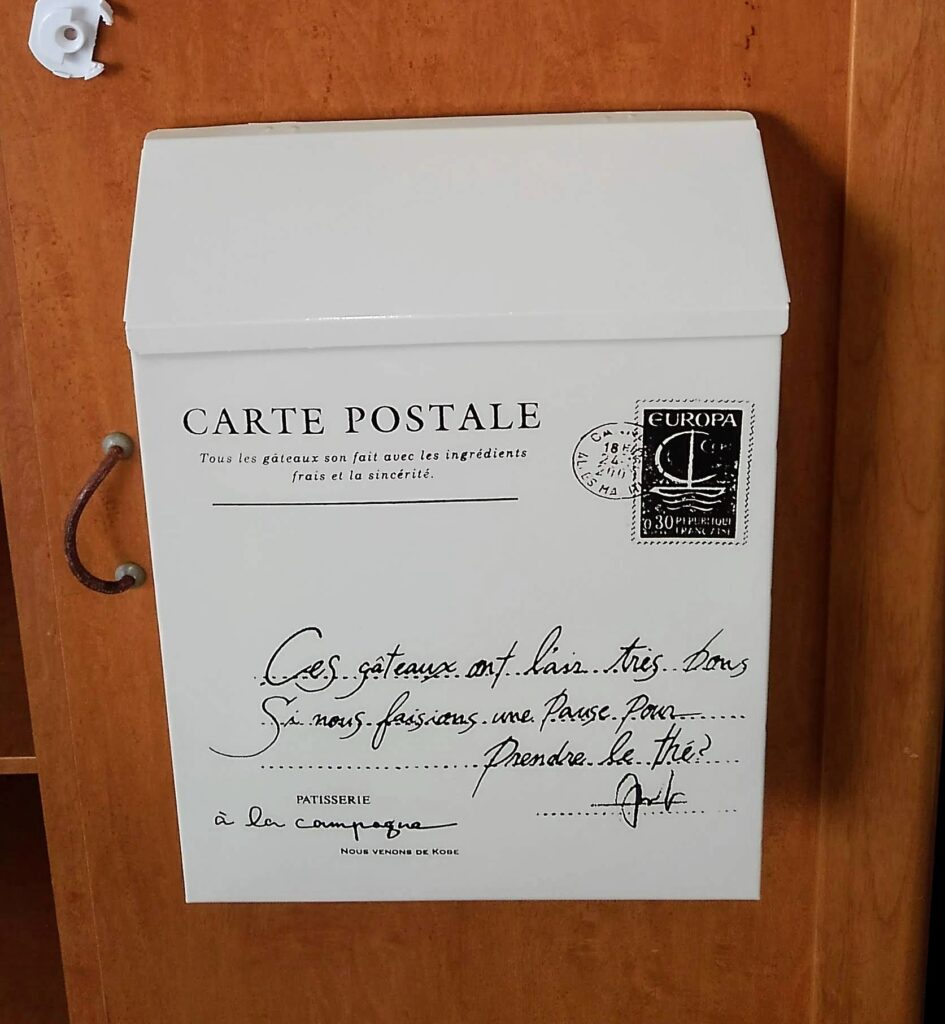 CARTE POSTALE
Tous les gâteaux son fait avec les ingrédients
frais et la sincérité.
EUROPA
18
0.30 REPUBLIQUE
FRANÇAISE
Ces gâteaux ont l'air très bons
Si nous faisions une Pause Pour
Prendre le thé?
PATISSERIE
à la campagne
NOUS VENONS DE KOBE